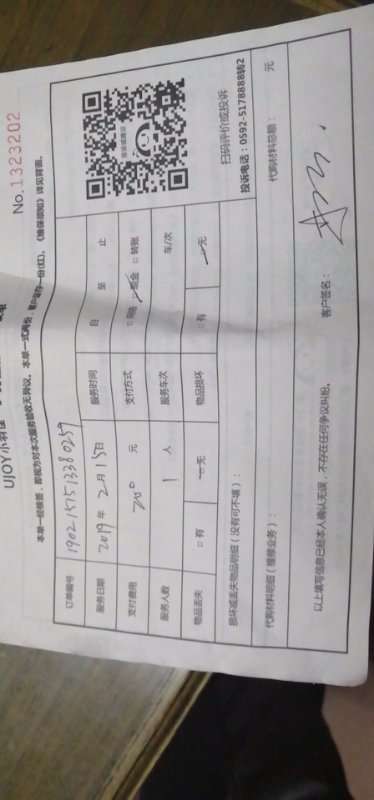 UJOY小羽佳
No.1323202
本单一经签署，即视方对本次服务验收无异议。本单一式两份，客户留存一份(红)，《维保须知》详见背面。
订单编号 1902157513380259
服务日期 2019年2月15日 服务时间 自 至 止
支付费用 200 元 支付方式 □现金 □转账
服务人数 1 人 服务车次 车/次
物品丢失 □有 □无 物品损坏 □有 □无
扫码评价或投诉
投诉电话：0592-5178888转2
损坏或丢失物品明细（没有可不填）：
代购材料明细（维修业务）： 代购材料总额： 元
以上填写信息已经本人确认无误，不存在任何争议纠纷。 客户签名：